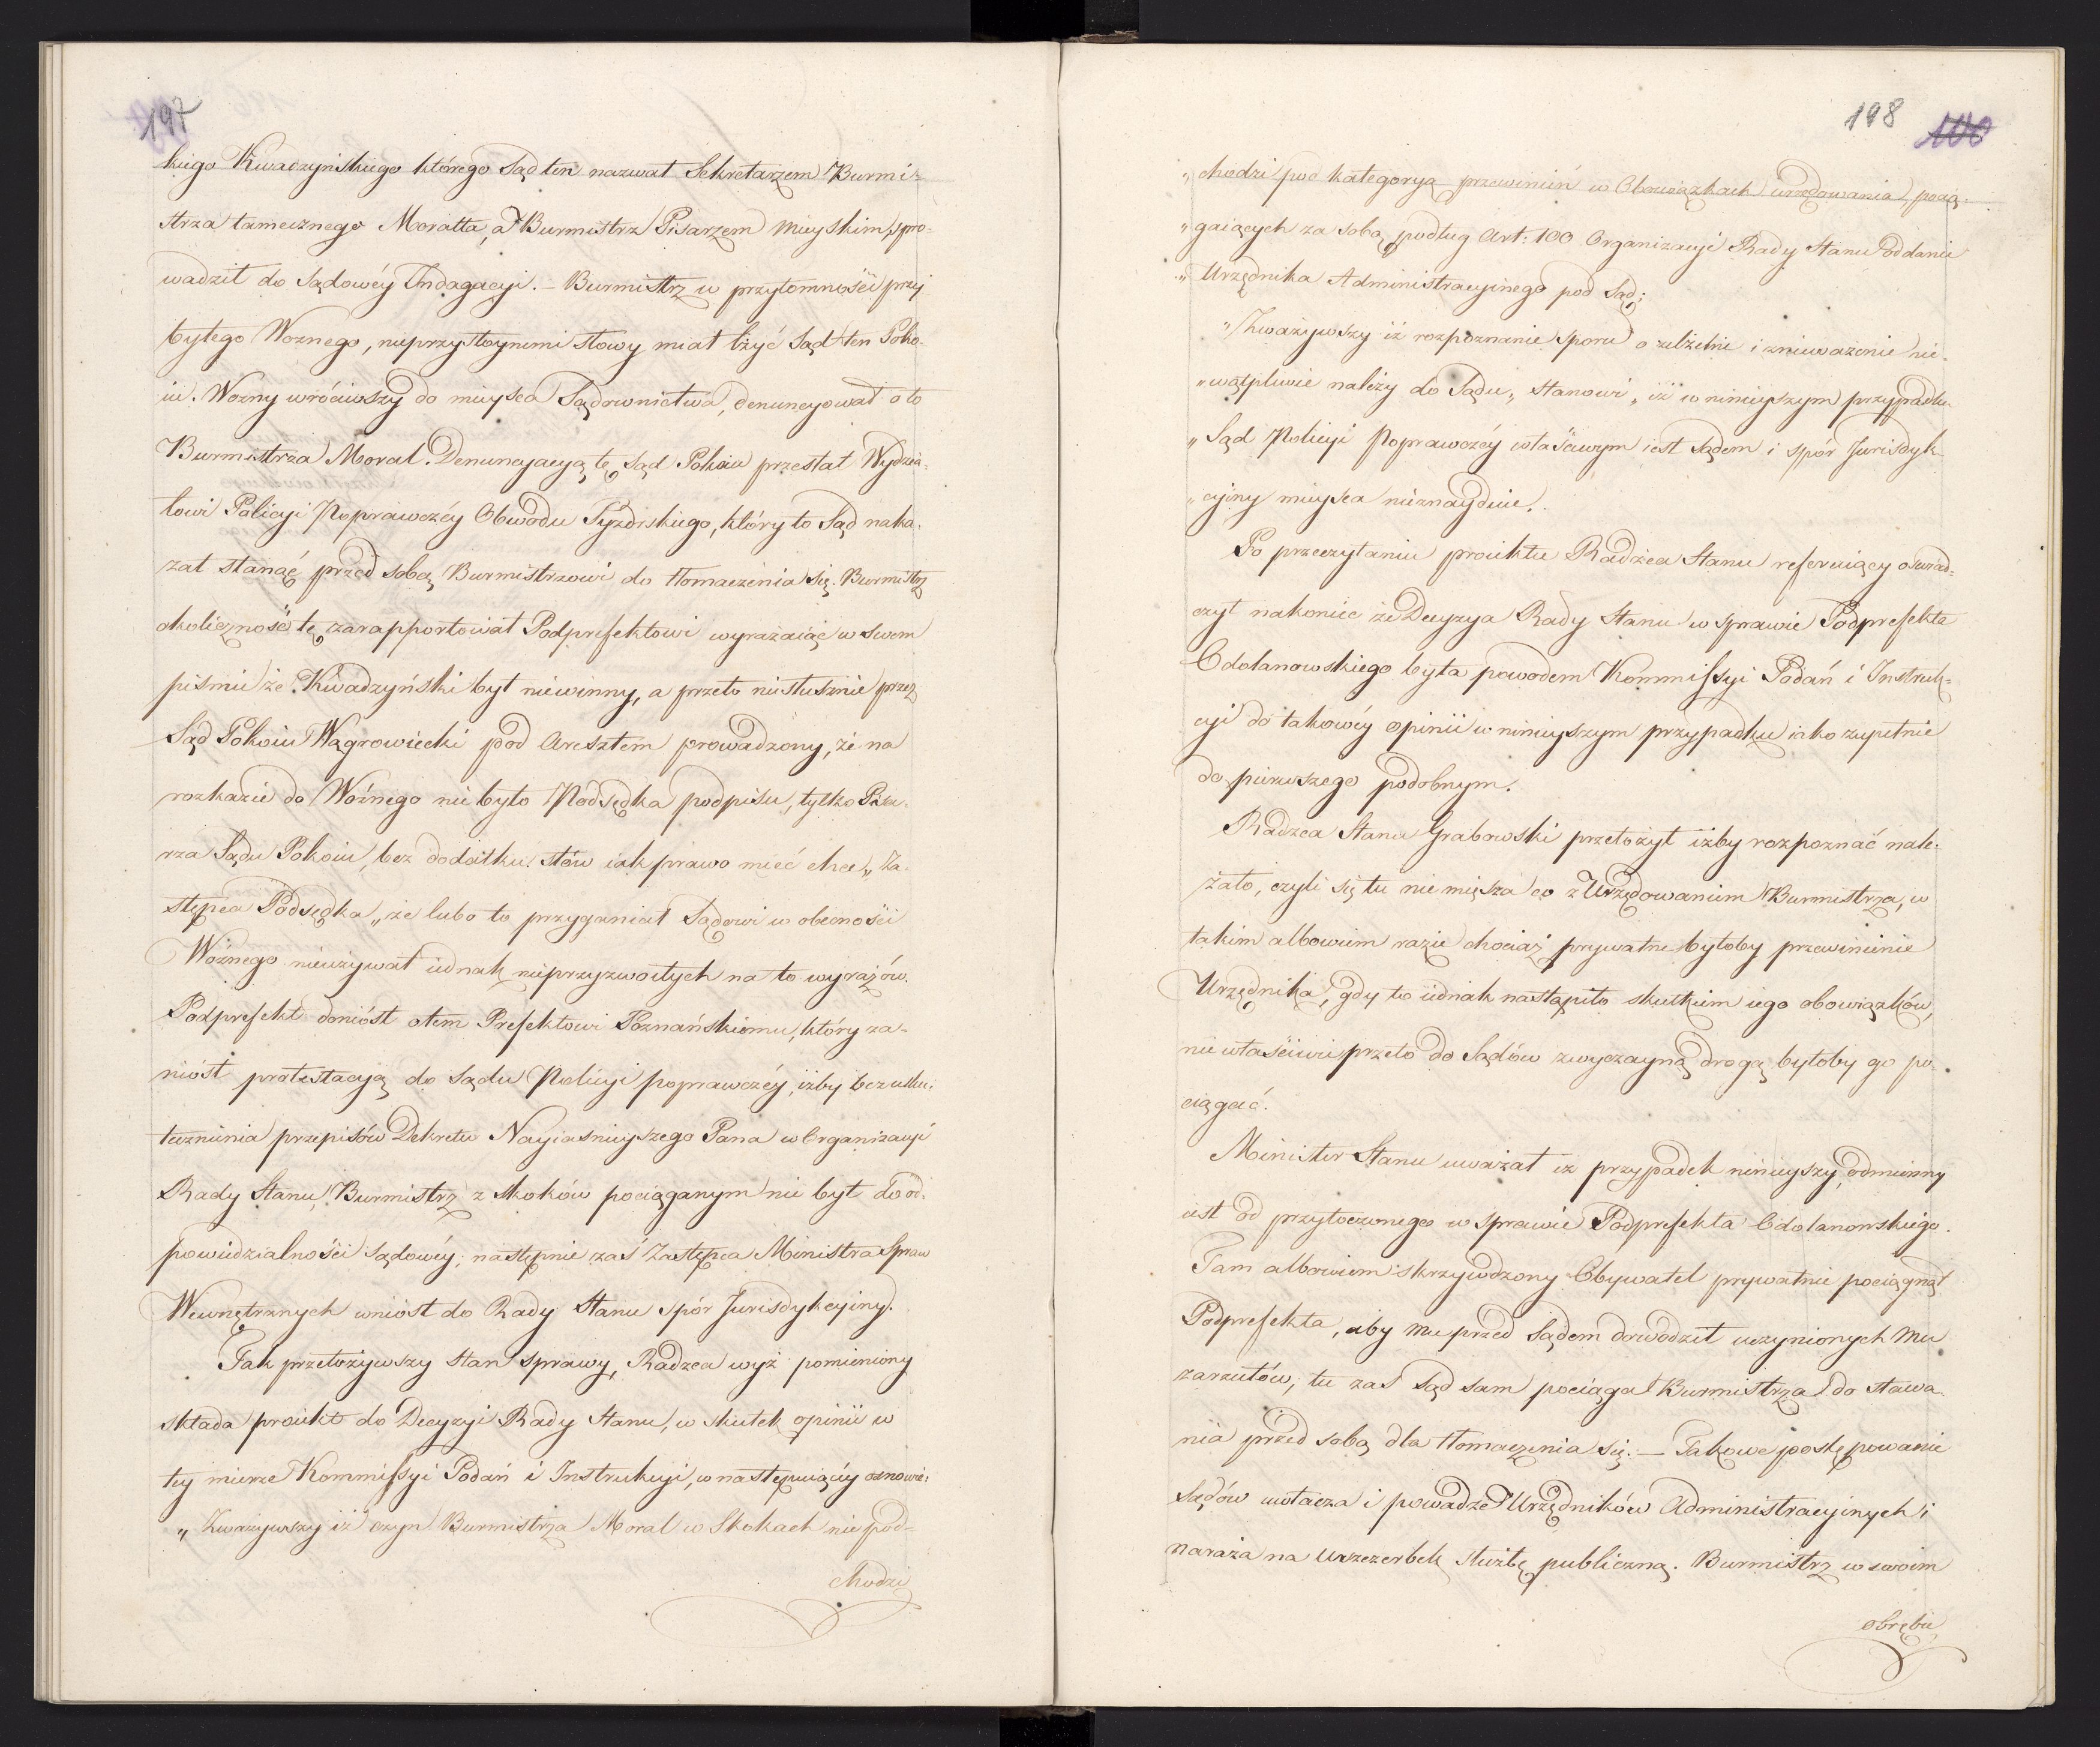 197
kiego Kwadzyńskiego którego Sąd ten nazwał Sekretarzem Burmi-
strza tamecznego Moratta, a Burmistrz Pisarzem Mieyskim, spro-
wadził do Sądowéy Indagacyi. – Burmistrz w przytomności przy
byłego Woznego, nieprzystoynemi słowy miał lżyć Sąd ten Poko-
iu. Wozny wróciwszy do mieysca Sądownictwa, denuncyował o to
Burmistrza Moral. Denuncyacyą tę Sąd Pokoiu przesłał Wydzia-
łowi Policyi Poprawczéy Obwodu Pyzdrskiego, który to Sąd naka-
zał stanąć przed sobą Burmistrzowi do tłomaczenia się. Burmistrz
okoliczność tę zarapportował Podprefektowi wyrażaiąc w swem
piśmie że Kwadzyński był niewinny, a przeto niesłusznie przez
Sąd Pokoiu Wągrowiecki pod Aresztem prowadzony, że na
rozkazie do Woźnego nie było Podsędka podpisu, tylko Pisa-
rza Sądu Pokoiu, bez dodatku słów iak prawo mieć chce „ Za-
stępca Podsędka „ że lubo to przyganiał Sądowi w obecności
Woźnego nieużywał iednak nieprzyzwoitych na to wyrazów.
Podprefekt doniósł o tem Prefektowi Poznańskiemu, który za-
niósł protestacyą do Sądu Policyi poprawczéy, iżby bez usku-
tecznienia przepisów Dekretu Nayiasnieyszego Pana w Organizacyi
Rady Stanu, Burmistrz z Skoków pociąganym nie był do od-
powiedzialności Sądowéy; następnie zaś Zastępca Ministra Spraw
Wewnętrznych wniósł do Rady Stanu spór Jurisdykcyiny.
Tak przełożywszy stan sprawy, Radzca wyż pomieniony
składa proiekt do Decyzyi Rady Stanu, w skutek opinii w
tey mierze Kommissyi Podań i Instrukcyi, w następuiącéy osnowie:
„ Zważywszy iż czyn Burmistrza Moral w Skokach nie pod-
chodzi
198 100
„ chodzi pod kategoryą przewinień w Obowiązkach urzędowania, pocią-
„ gaiących za sobą podług Art: 100 Organizacyi Rady Stanu oddanie
„ Urzędnika Administracyinego pod Sąd;
„ Zważywszy iż rozpoznanie sporu o zelżenie i znieważenie nie-
„ wątpliwie należy do Sądu, stanowi, iż w ninieyszym przypadku
„ Sąd Policyi Poprawczéy właściwym iest Sądem i spór Jurisdyk-
„ cyiny mieysca nieznayduie.
Po przeczytaniu proiektu Radzca Stanu referuiący oswiad-
czył nakoniec że Decyzya Rady Stanu w sprawie Podprefekta
Odolanowskiego była powodem Kommissyi Podań i Instruk-
cyi do takowéy opinii w ninieyszym przypadku iako zupełnie
do pierwszego podobnym.
Radzca Stanu Grabowski przełożył iżby rozpoznać nale-
żało, czyli się tu nie miesza co z Urzędowaniem Burmistrza, w
takim albowiem razie chociaż prywatne byłoby przewinienie
Urzędnika, gdy to iednak nastąpiło skutkiem iego obowiązków,
nie właściwie przeto do Sądów zwyczayną drogą byłoby go po-
ciągać.
Minister Stanu uważał iż przypadek ninieyszy, odmienny
iest od przytoczonego w sprawie Podprefekta Odolanowskiego.
Tam albowiem skrzywdzony Obywatel prywatnie pociągnął
Podprefekta, aby mu przed Sądem dowodził uczynionych mu
zarzutów, tu zaś Sąd sam pociąga Burmistrza do stawa-
nia przed sobą dla tłomaczenia się. – Takowe postępowanie
Sądów uwłacza i powadze Urzędników Administracyinych i
naraża na uszczerbek służbę publiczną. Burmistrz w swoim
obrębie